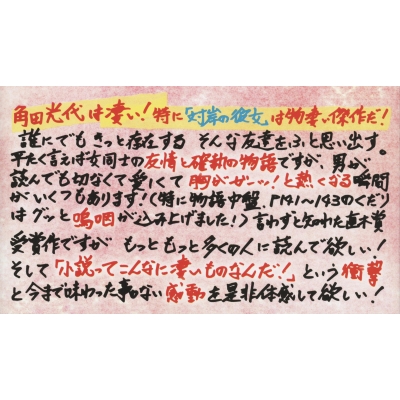 角田光代は凄い!特に「対岸の彼女」は物凄い傑作だ!
誰にでもきっと存在するそんな友達をふと思い出す。
平たく言えば女同士の友情と確執の物語ですが、男が
読んでも切なくて愛しくて胸がガンッ!と熱くなる瞬間
がいくつもあります!(特に物語中盤、P141〜143のくだり
はグッと嗚咽が込み上げました!)言わずと知れた直木賞
受賞作ですがもっともっと多くの人に読んで欲しい!
そして「小説ってこんなに凄いものなんだ!」という衝撃
と今まで味わった事のない感動を是非体感して欲しい!